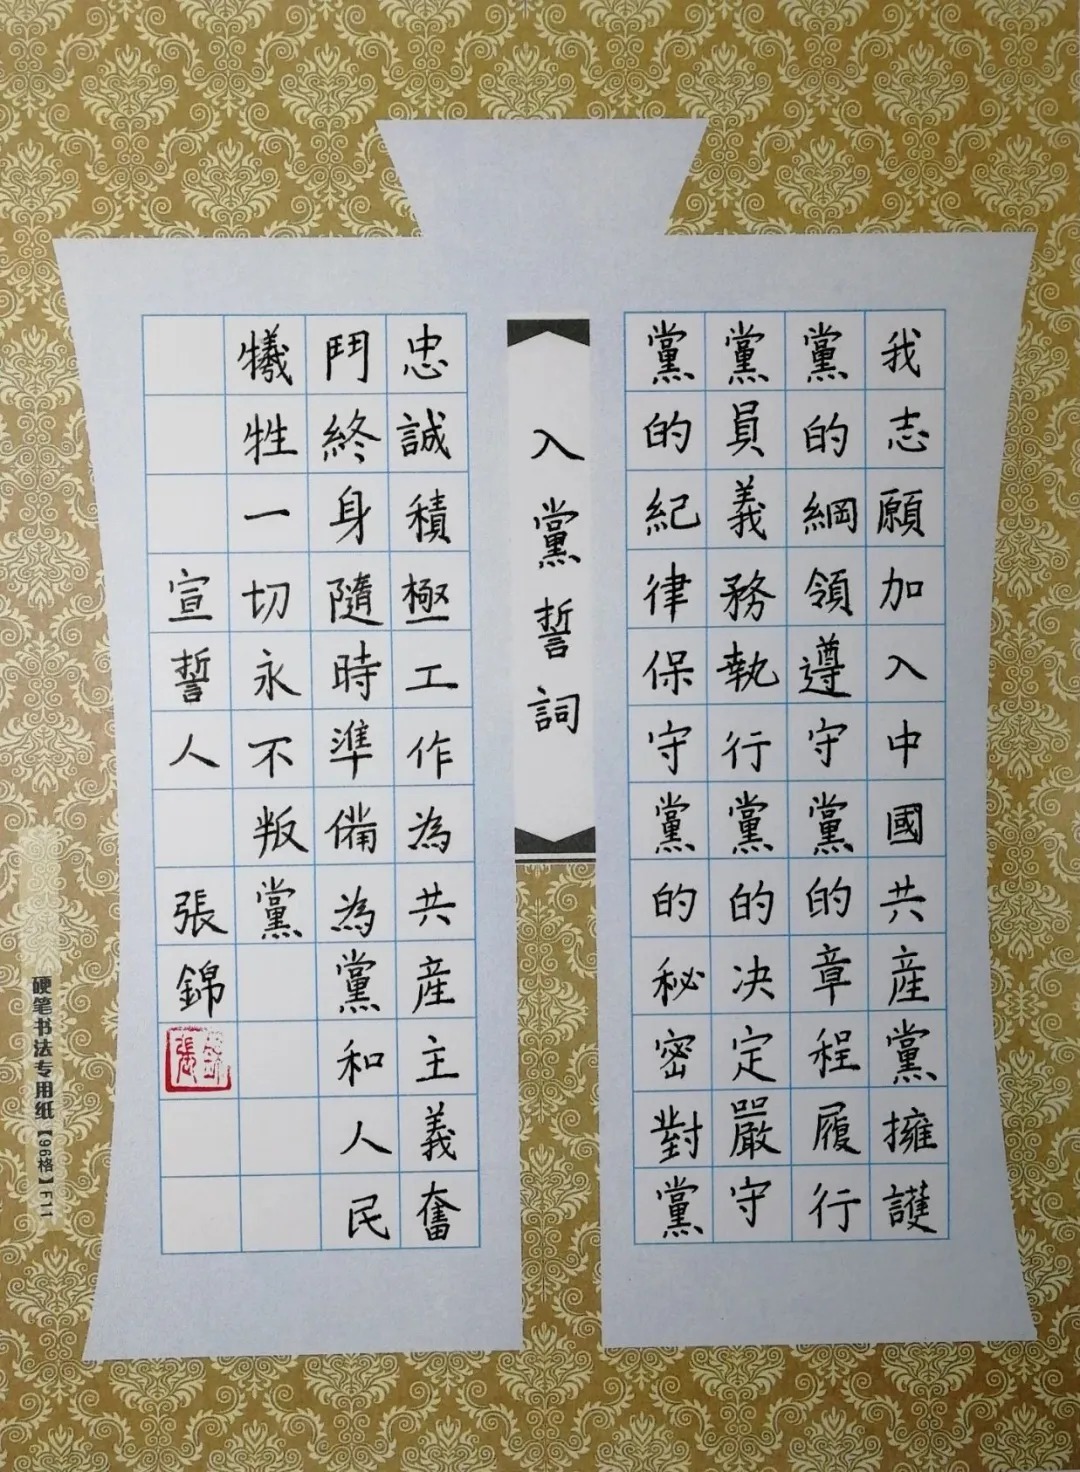 入黨誓詞
我志願加入中國共産黨擁護
黨的綱領遵守黨的章程履行
黨員義務執行黨的决定嚴守
黨的紀律保守黨的秘密對黨
忠誠積極工作為共産主義奮
鬥終身隨時準備為黨和人民
犧牲一切永不叛黨
宣誓人 張錦
硬笔书法专用纸【96格】F11